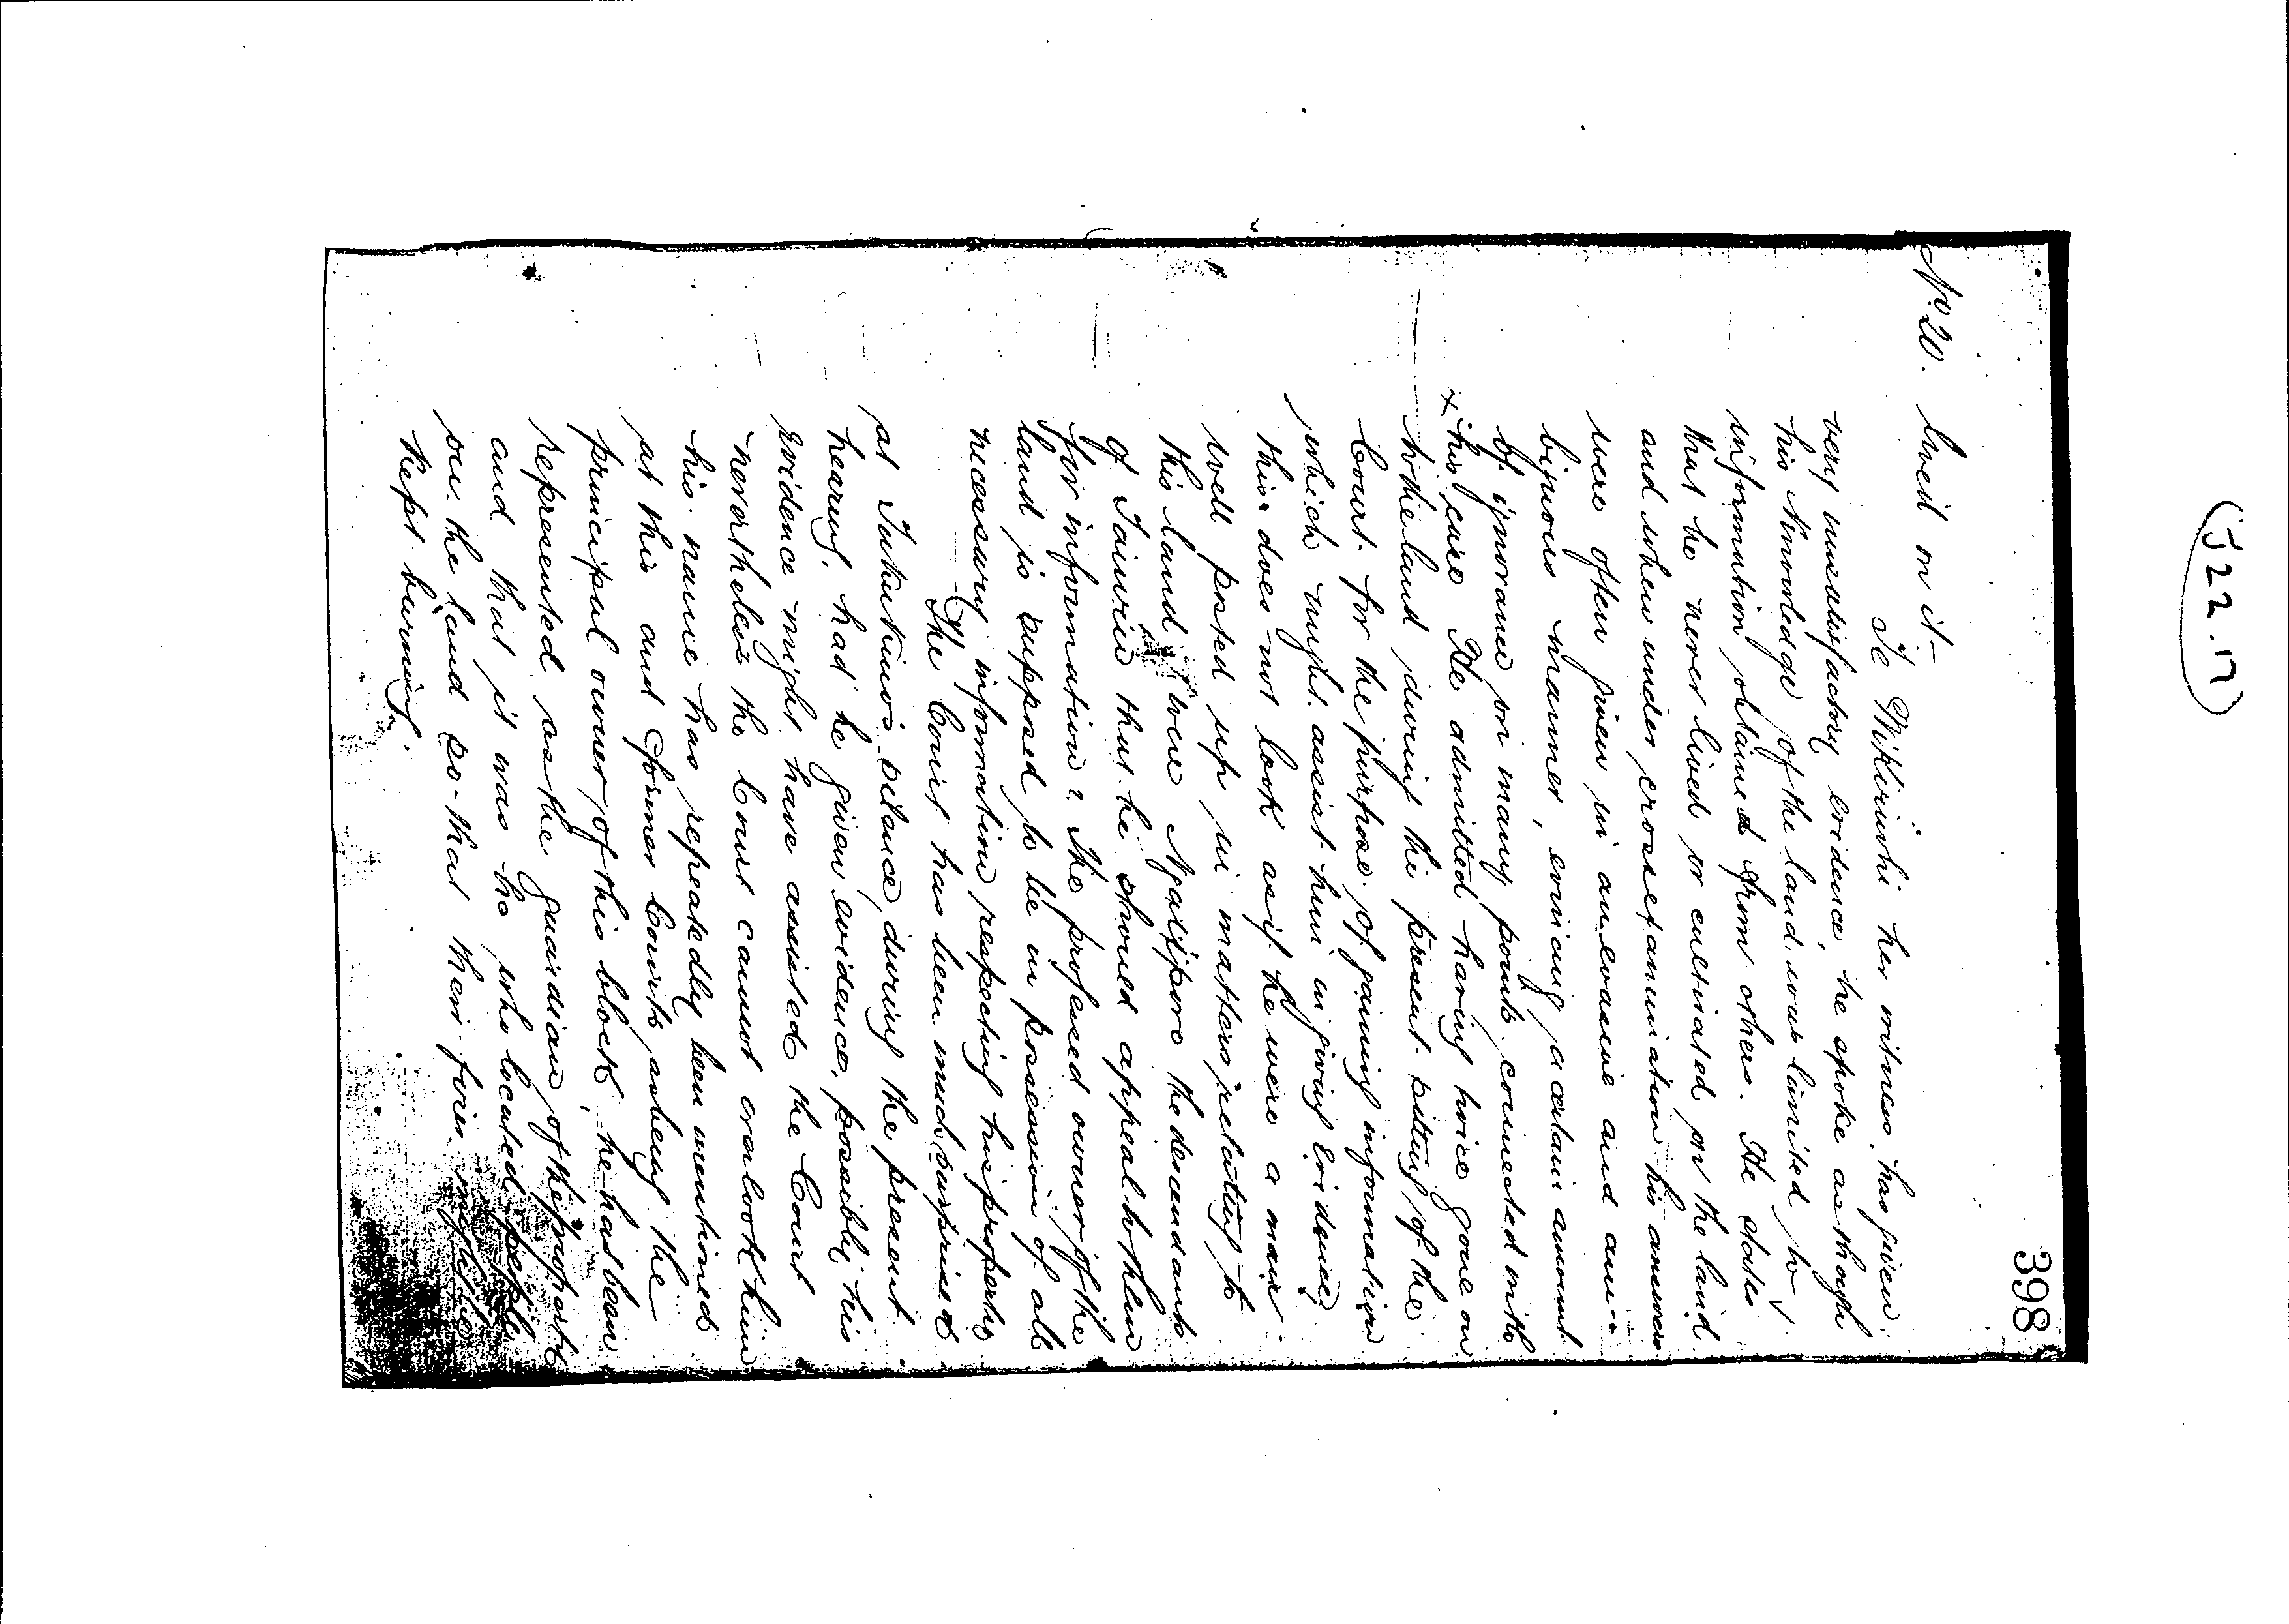 (J22.17)
398
No 20. lived on it.
Te Wikiriwhi her witness, has given
very unsatisfactory evidence, he spoke as though
his knowledge of the land was limited to
information obtained from others. He states
that he never lived or cultivated on the land
and when under cross examination his answers
were often given in an evasive and am-
biguous manner, evincing a certain amount
of ignorance on many points connected with
x his case. He admitted having twice gone on
to the land during the present sitting of the
Court for the purpose of gaining information
which might assist him in giving evidence,
this does not look as if he were a man
well posted up in matters relating to
this land were Ngatipare the descendants
of Tawera that he should appeal to them
for information? The professed owner of the
land is supposed to be in possession of all
necessary information respecting his property
The Court has been much surprised
at silence, during the present
hearing, had he given evidence, possibly his
evidence might have assisted the Court
nevertheless the Court cannot overlook him
his name has repeatedly been mentioned
at this and former Courts as being the
principal owner of this block, he has been
represented as the guardian of the property
and that it was he who located people
on the land so that their fires might be
kept burning.